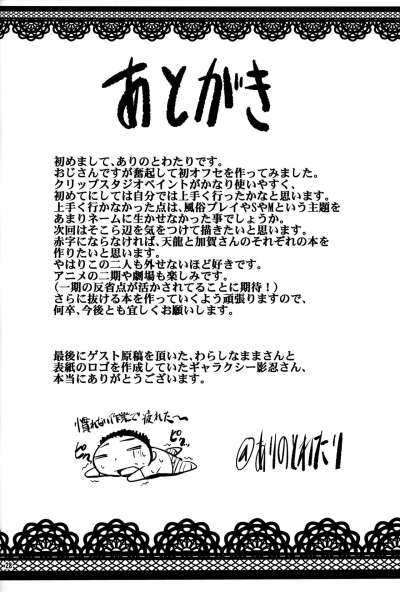 あとがき
初めまして、ありのとわたりです。
おじさんですが奮起して初オフセを作ってみました。
クリップスタジオペイントがかなり使いやすく、
初めてにしては自分では上手く行ったかなと思います。
上手く行かなかった点は、風俗プレイやSやMという主題を
あまりネームに生かせなかった事でしょうか。
次回はそこら辺を気をつけて描きたいと思います。
赤字にならなければ、天龍と加賀さんのそれぞれの本を
作りたいと思います。
やはりこの二人も外せないほど好きです。
アニメの二期や劇場も楽しみです。
(一期の反省点が活かされてることに期待！)
さらに抜ける本を作っていくよう頑張りますので、
何卒、今後とも宜しくお願いします。
最後にゲスト原稿を頂いた、わらしなままさんと
表紙のロゴを作成していたギャラクシー影忍さん、
本当にありがとうございます。
疲れた〜
ピク
ピク
@ありのとわたり